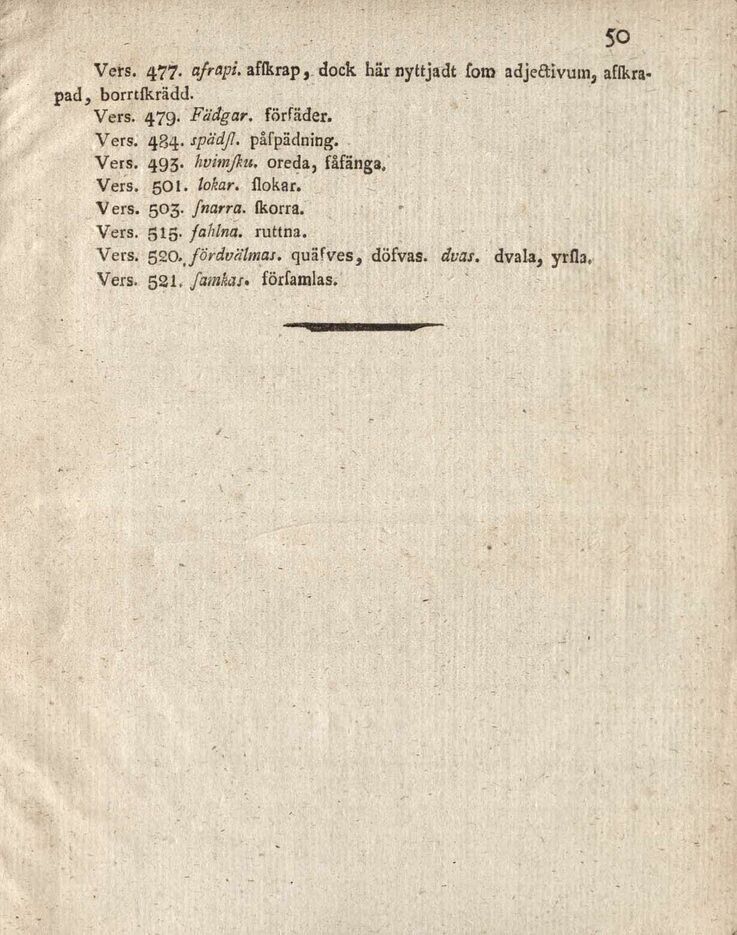 50
Vers. 477. afrapi. afſkrap, dock här nyttjadt ſom adjectivum, afſkra-
pad, borrtſkrädd.
Vers. 479. Fädgar. förfäder.
Vers. 484. spädſl. påſpädning.
Vers. 493. hvimſku. oreda, fåfänga.
Vers. 501. lokar. ſlokar.
Vers. 503. ſnarra. ſkorra.
Vers. 515. fahlna. ruttna.
Vers. 520. fördvälmas. quäfves, döfvas. dvas. dvala, yrſla.
Vers. 521. ſamkas. förſamlas.